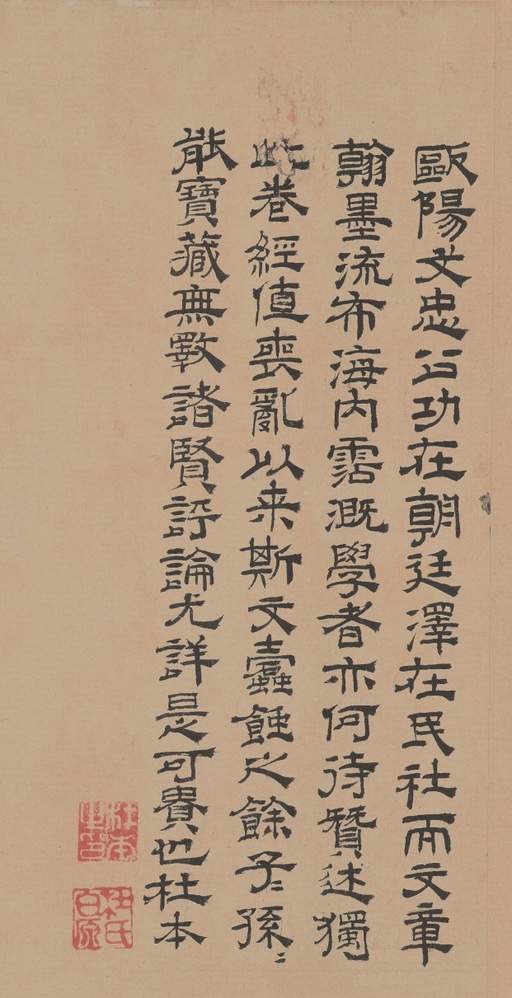 歐陽文忠公功在朝廷澤在民社而文章
翰墨流布海内霑溉學者亦何待賛述獨
此卷經值喪亂以来斯文蠹蝕之餘子〻孫〻
能寶藏無斁諸賢評論尤詳是可貴也杜本
杜本
杜氏白原